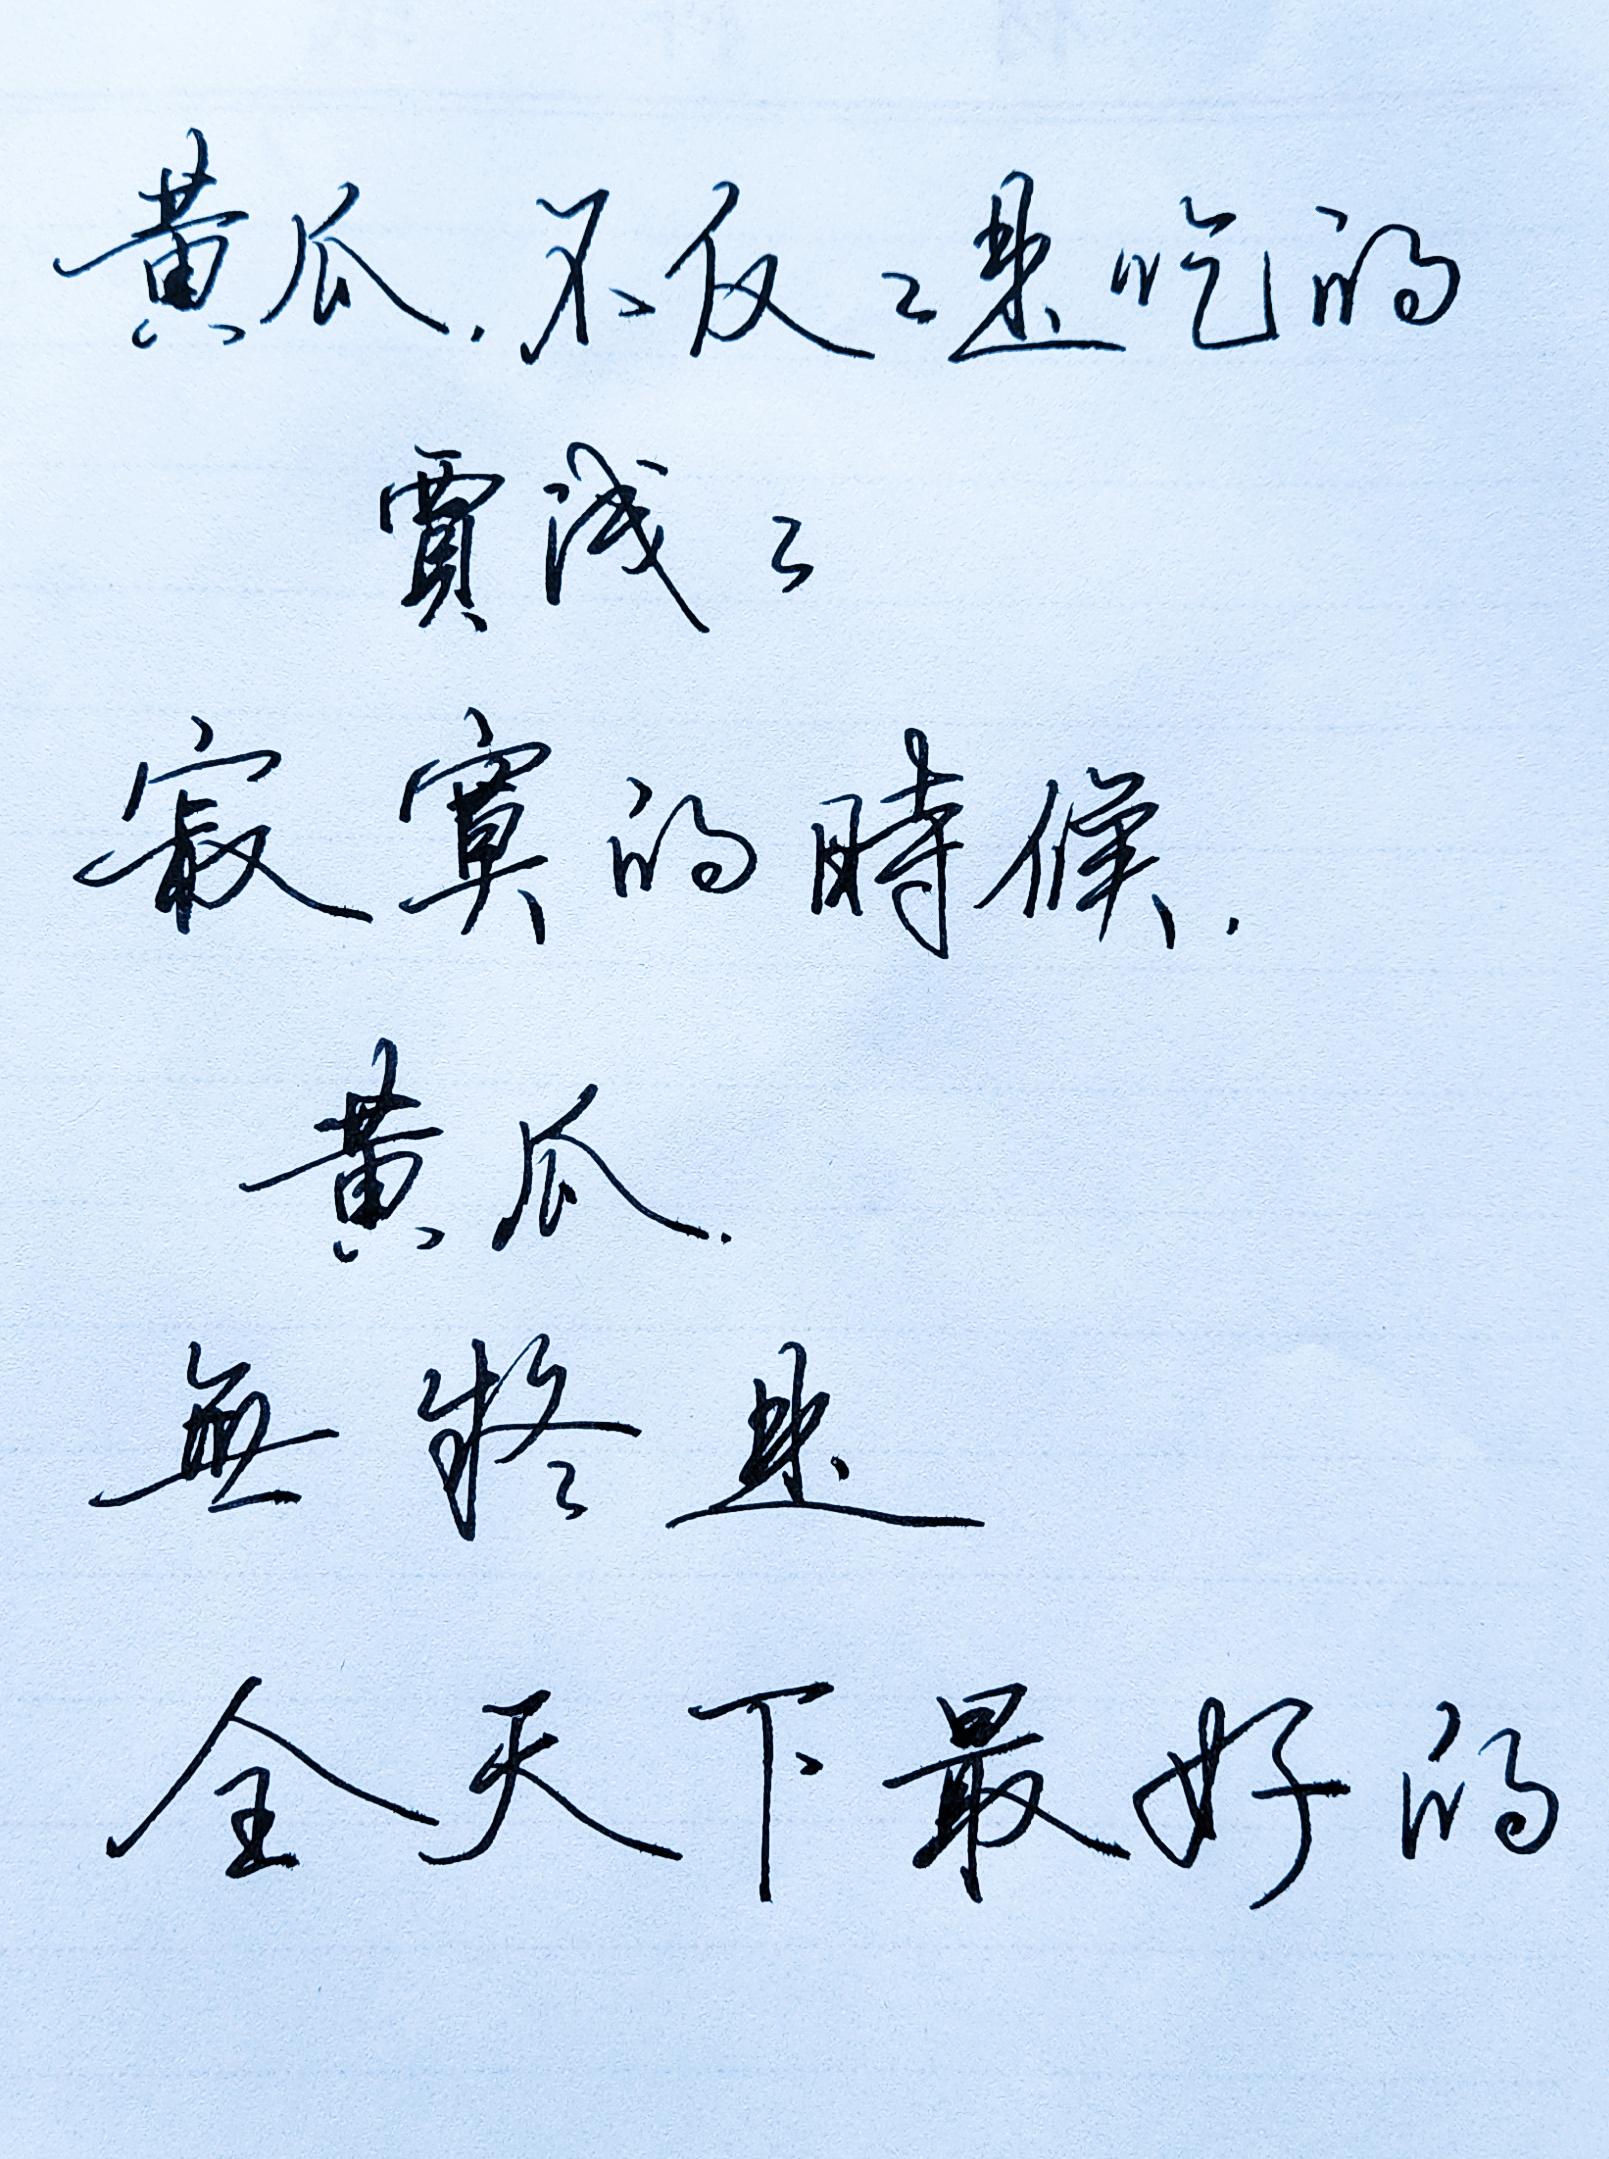 黄瓜.不仅々是吃的
賈浅々
寂寞的時候.
黄瓜.
無疑是
全天下最好的